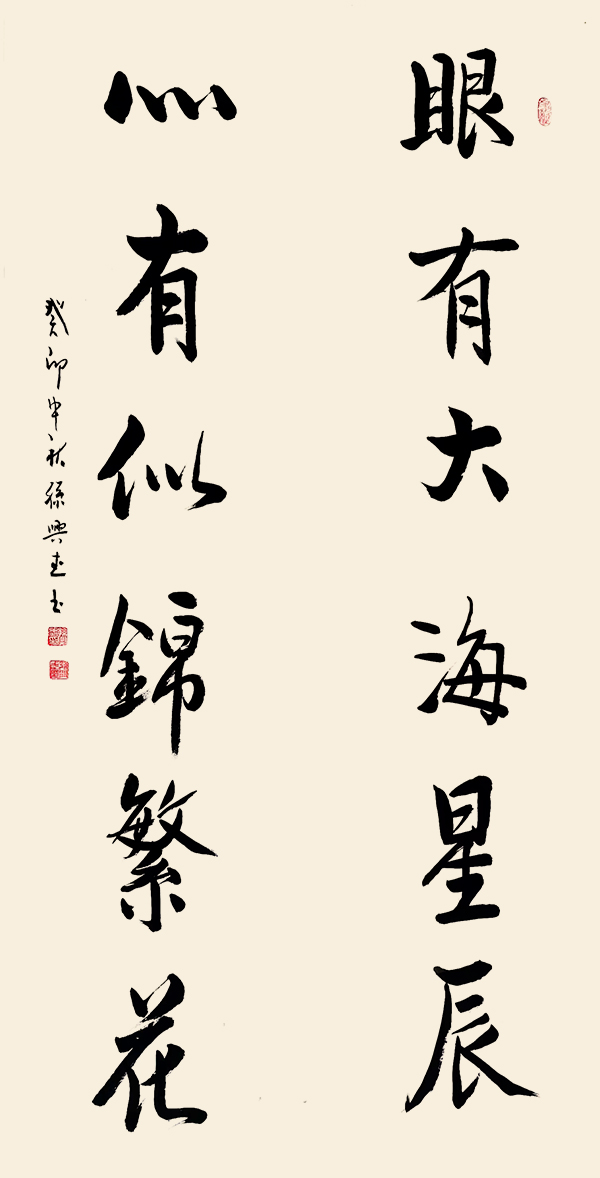 眼有大海星辰
心有似錦繁花
癸卯中秋孫興